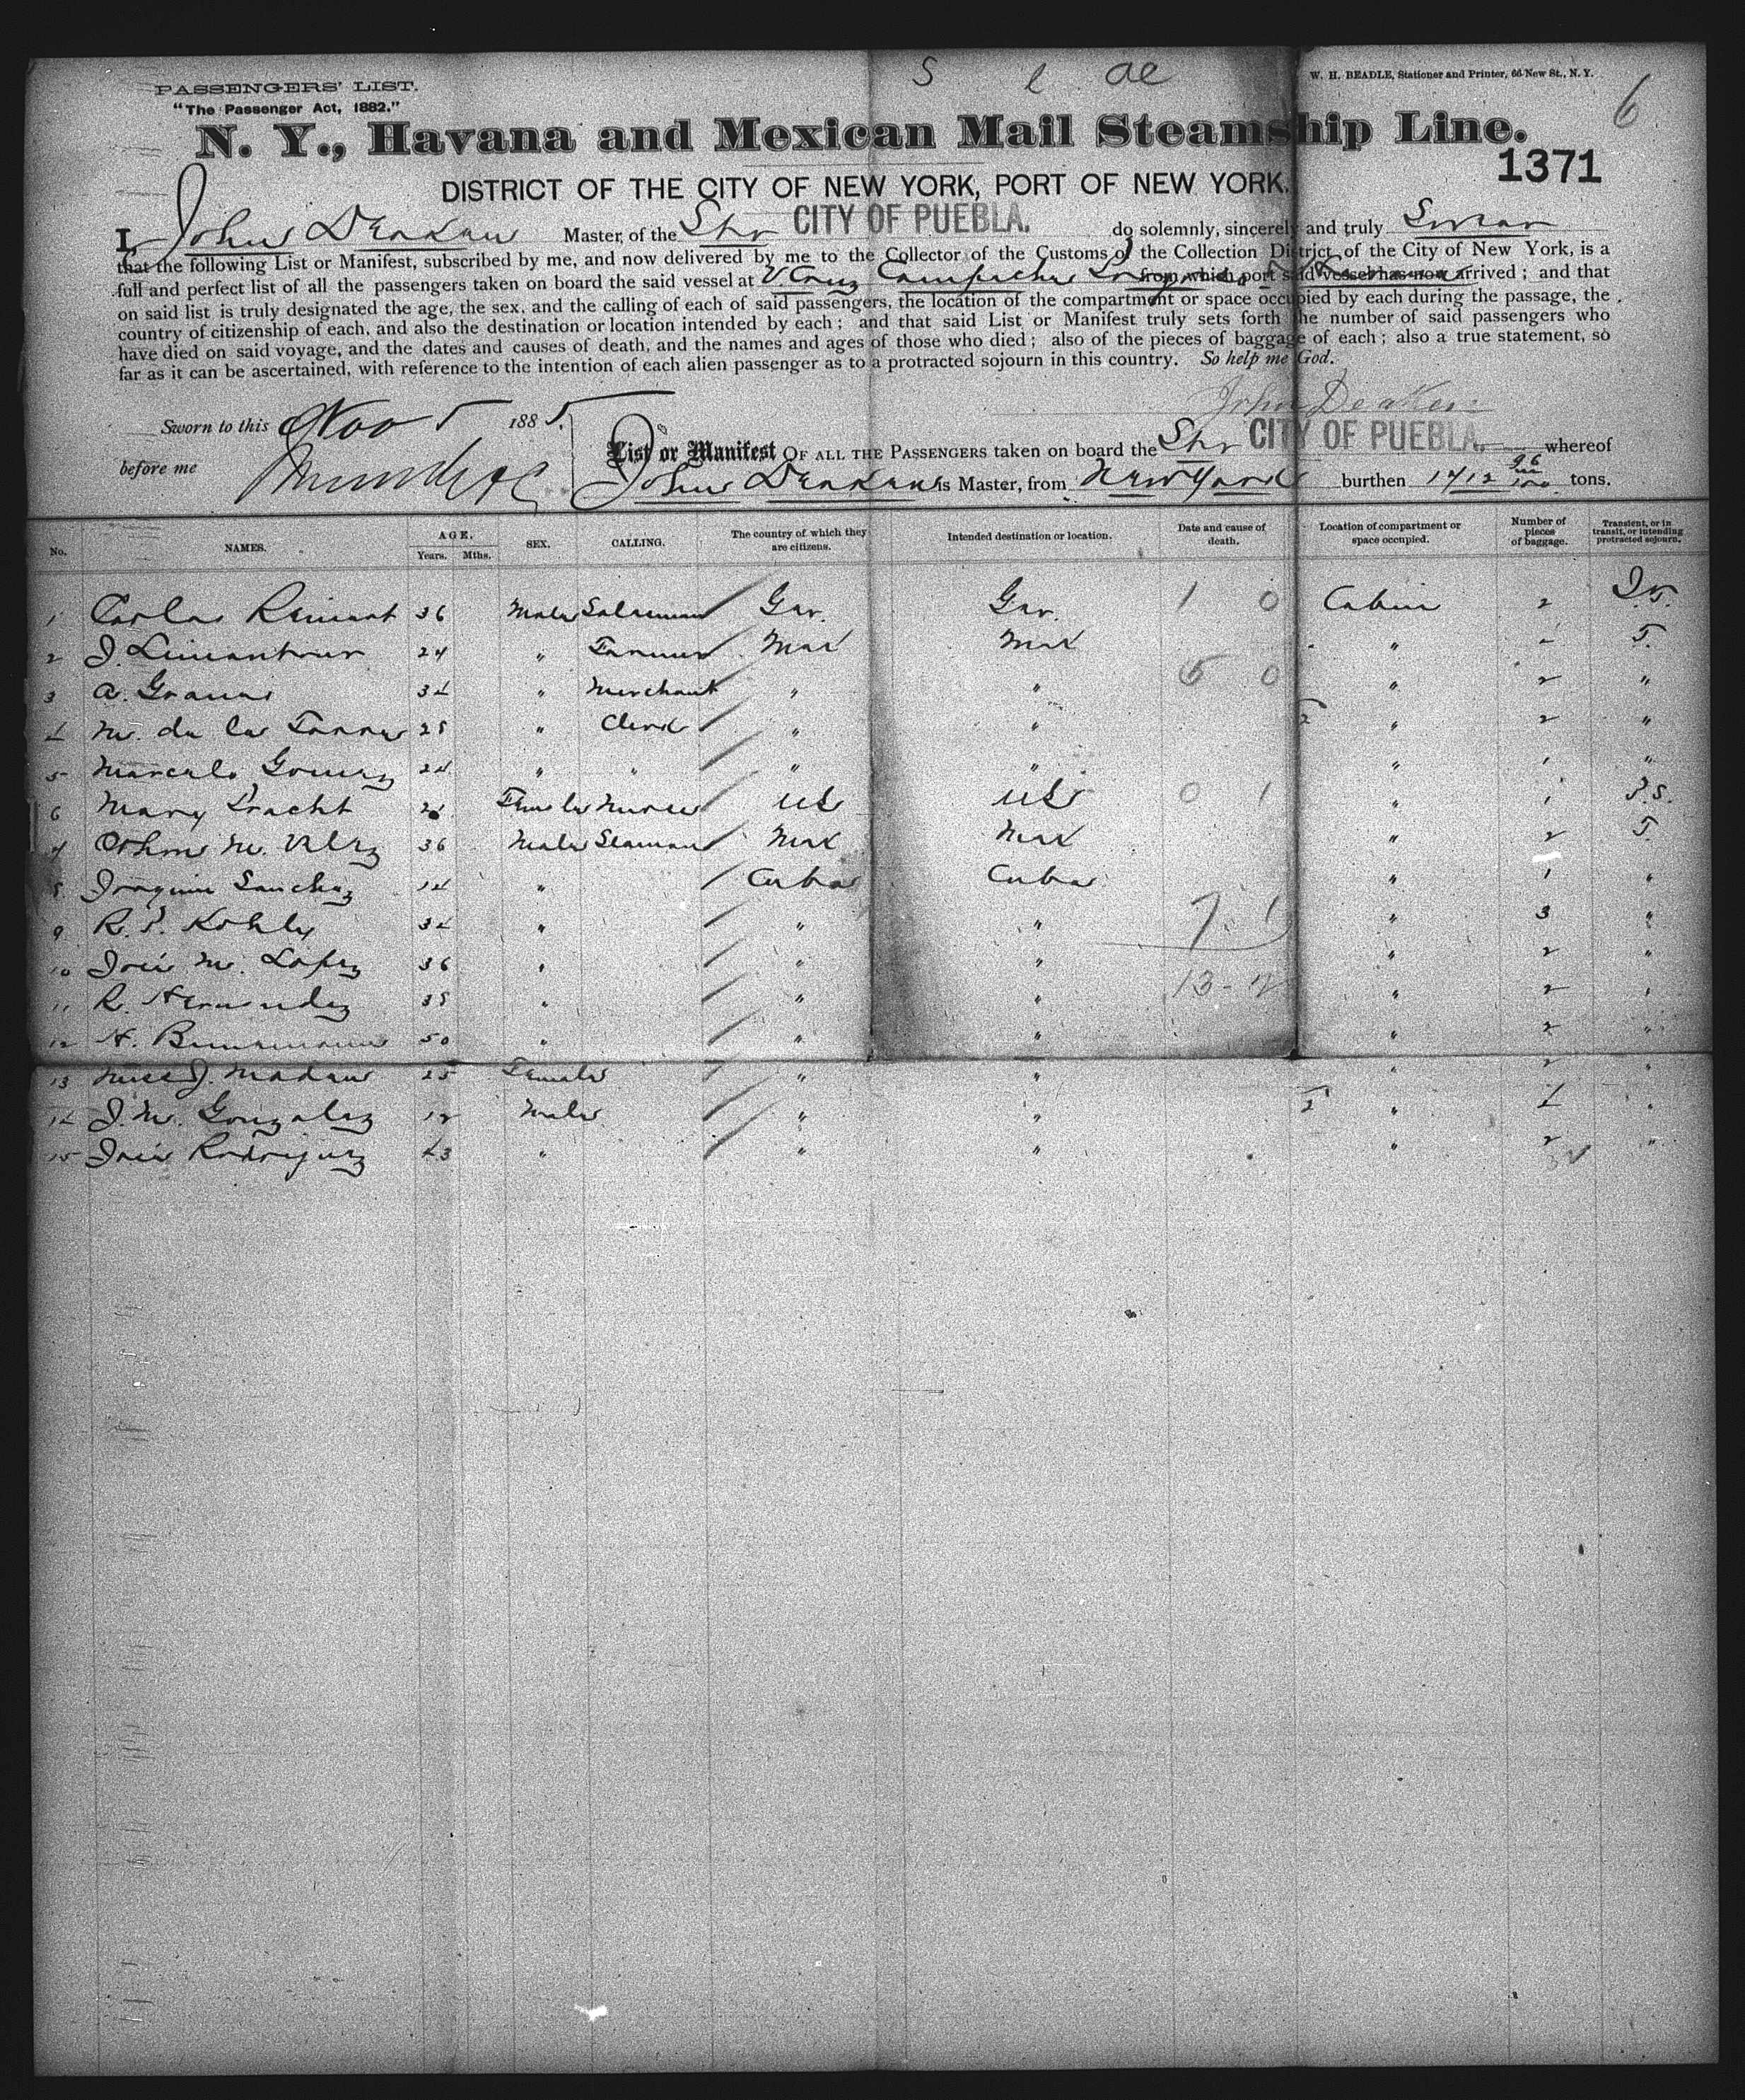 S l ae
PASSENGERS' LIST.
W. H. BEADLE, Stationer and Printer, 66 New St., N. Y.
6
"The Passenger Act, 1882."
N. Y., Havana and Mexican Mail Steamship Line.
1371
DISTRICT OF THE CITY OF NEW YORK, PORT OF NEW YORK.
I, John Deaken Master, of the Str CITY OF PUEBLA. do solemnly, sincerely and truly Swear
that the following List or Manifest, subscribed by me, and now delivered by me to the Collector of the Customs of the Collection District of the City of New York, is a
full and perfect list of all the passengers taken on board the said vessel at V. Cruz Campeche from which port said vessel has now arrived; and that
on said list is truly designated the age, the sex, and the calling of each of said passengers, the location of the compartment or space occupied by each during the passage, the
country of citizenship of each, and also the destination or location intended by each; and that said List or Manifest truly sets forth the number of said passengers who
have died on said voyage, and the dates and causes of death, and the names and ages of those who died; also of the pieces of baggage of each; also a true statement, so
far as it can be ascertained, with reference to the intention of each alien passenger as to a protracted sojourn in this country. So help me God.
John Deaken
Sworn to this Nov 5 1885.
before me
List or Manifest OF ALL THE PASSENGERS taken on board the Str CITY OF PUEBLA. whereof
John Deaken is Master, from New York burthen 1712 96/100 tons.
No. NAMES. AGE. Years. Mths. SEX. CALLING. The country of which they are citizens. Intended destination or location. Date and cause of death. Location of compartment or space occupied. Number of pieces of baggage. Transient, or in transit, or intending protracted sojourn.
1 Carlos 36 Male Salesman Ger. Ger. 1 0 Cabin 2
2 J. Limantour 24 " Farmer Mex Mex " T.
3 A. 34 " Merchant " " 6 0 " 2 "
4 M. de la Torre 25 " Clerk " " " 2 "
5 Marcelo Gomez 24 " " " " " 1 "
6 Mary Tracht Female Nurse US US 0 1 " 1 P.S.
7 M. Velez 36 Male Seaman Mex Mex " 2 T.
8 Joaquin Sanchez 14 " Cuba Cuba " 1 "
9 R. P. Kohly 34 " " " 7 1 " 3 "
10 José M. Lopez 36 " " " " 2 "
11 R. Hernandez 35 " " " 13-2 " 2 "
12 H. 50 " " " " 2 "
13 Miss J. Madan 25 Female " " " 2 "
14 J. M. Gonzalez 12 Male " " " 4 "
15 José Rodriguez 43 " " " " 2 "